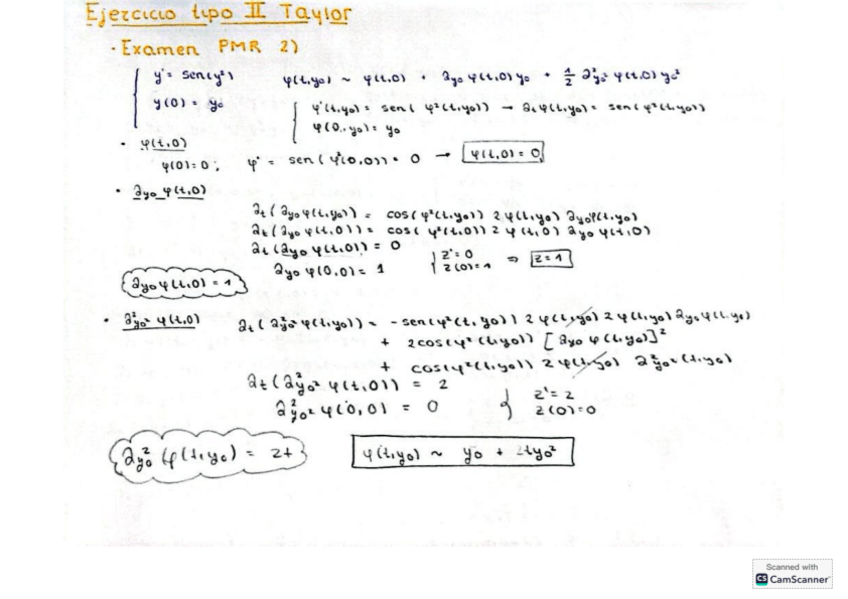 Ejercicio tipo II Taylor
· Examen PMR 2)
y' = sen(y²)   φ(t,y₀) ~ φ(t,0) + ∂y₀ φ(t,0) y₀ + 1/2 ∂²y₀² φ(t,0) y₀²
y(0) = y₀   φ'(t,y₀) = sen(φ²(t,y₀)) → ∂t φ(t,y₀) = sen(φ²(t,y₀))
φ(0,y₀) = y₀
· φ(t,0)
φ(0) = 0 ; φ' = sen(φ²(0,0)) = 0 → φ(t,0) = 0
· ∂y₀ φ(t,0)
∂t(∂y₀ φ(t,y₀)) = cos(φ²(t,y₀)) 2 φ(t,y₀) ∂y₀ φ(t,y₀)
∂t(∂y₀ φ(t,0)) = cos(φ²(t,0)) 2 φ(t,0) ∂y₀ φ(t,0)
∂t(∂y₀ φ(t,0)) = 0
∂y₀ φ(0,0) = 1   z' = 0   z(0) = 1 ⇒ z = 1
∂y₀ φ(t,0) = 1
· ∂²y₀² φ(t,0)   ∂t(∂²y₀² φ(t,y₀)) = -sen(φ²(t,y₀)) 2 φ(t,y₀) 2 φ(t,y₀) ∂y₀ φ(t,y₀)
+ 2cos(φ²(t,y₀)) [∂y₀ φ(t,y₀)]²
+ cos(φ²(t,y₀)) 2 φ(t,y₀) ∂²y₀² (t,y₀)
∂t(∂²y₀² φ(t,0)) = 2   z' = 2
∂²y₀² φ(0,0) = 0   z(0) = 0
∂y₀² (φ(t,y₀) = 2t   φ(t,y₀) ~ y₀ + ty₀²
Scanned with
CS CamScanner